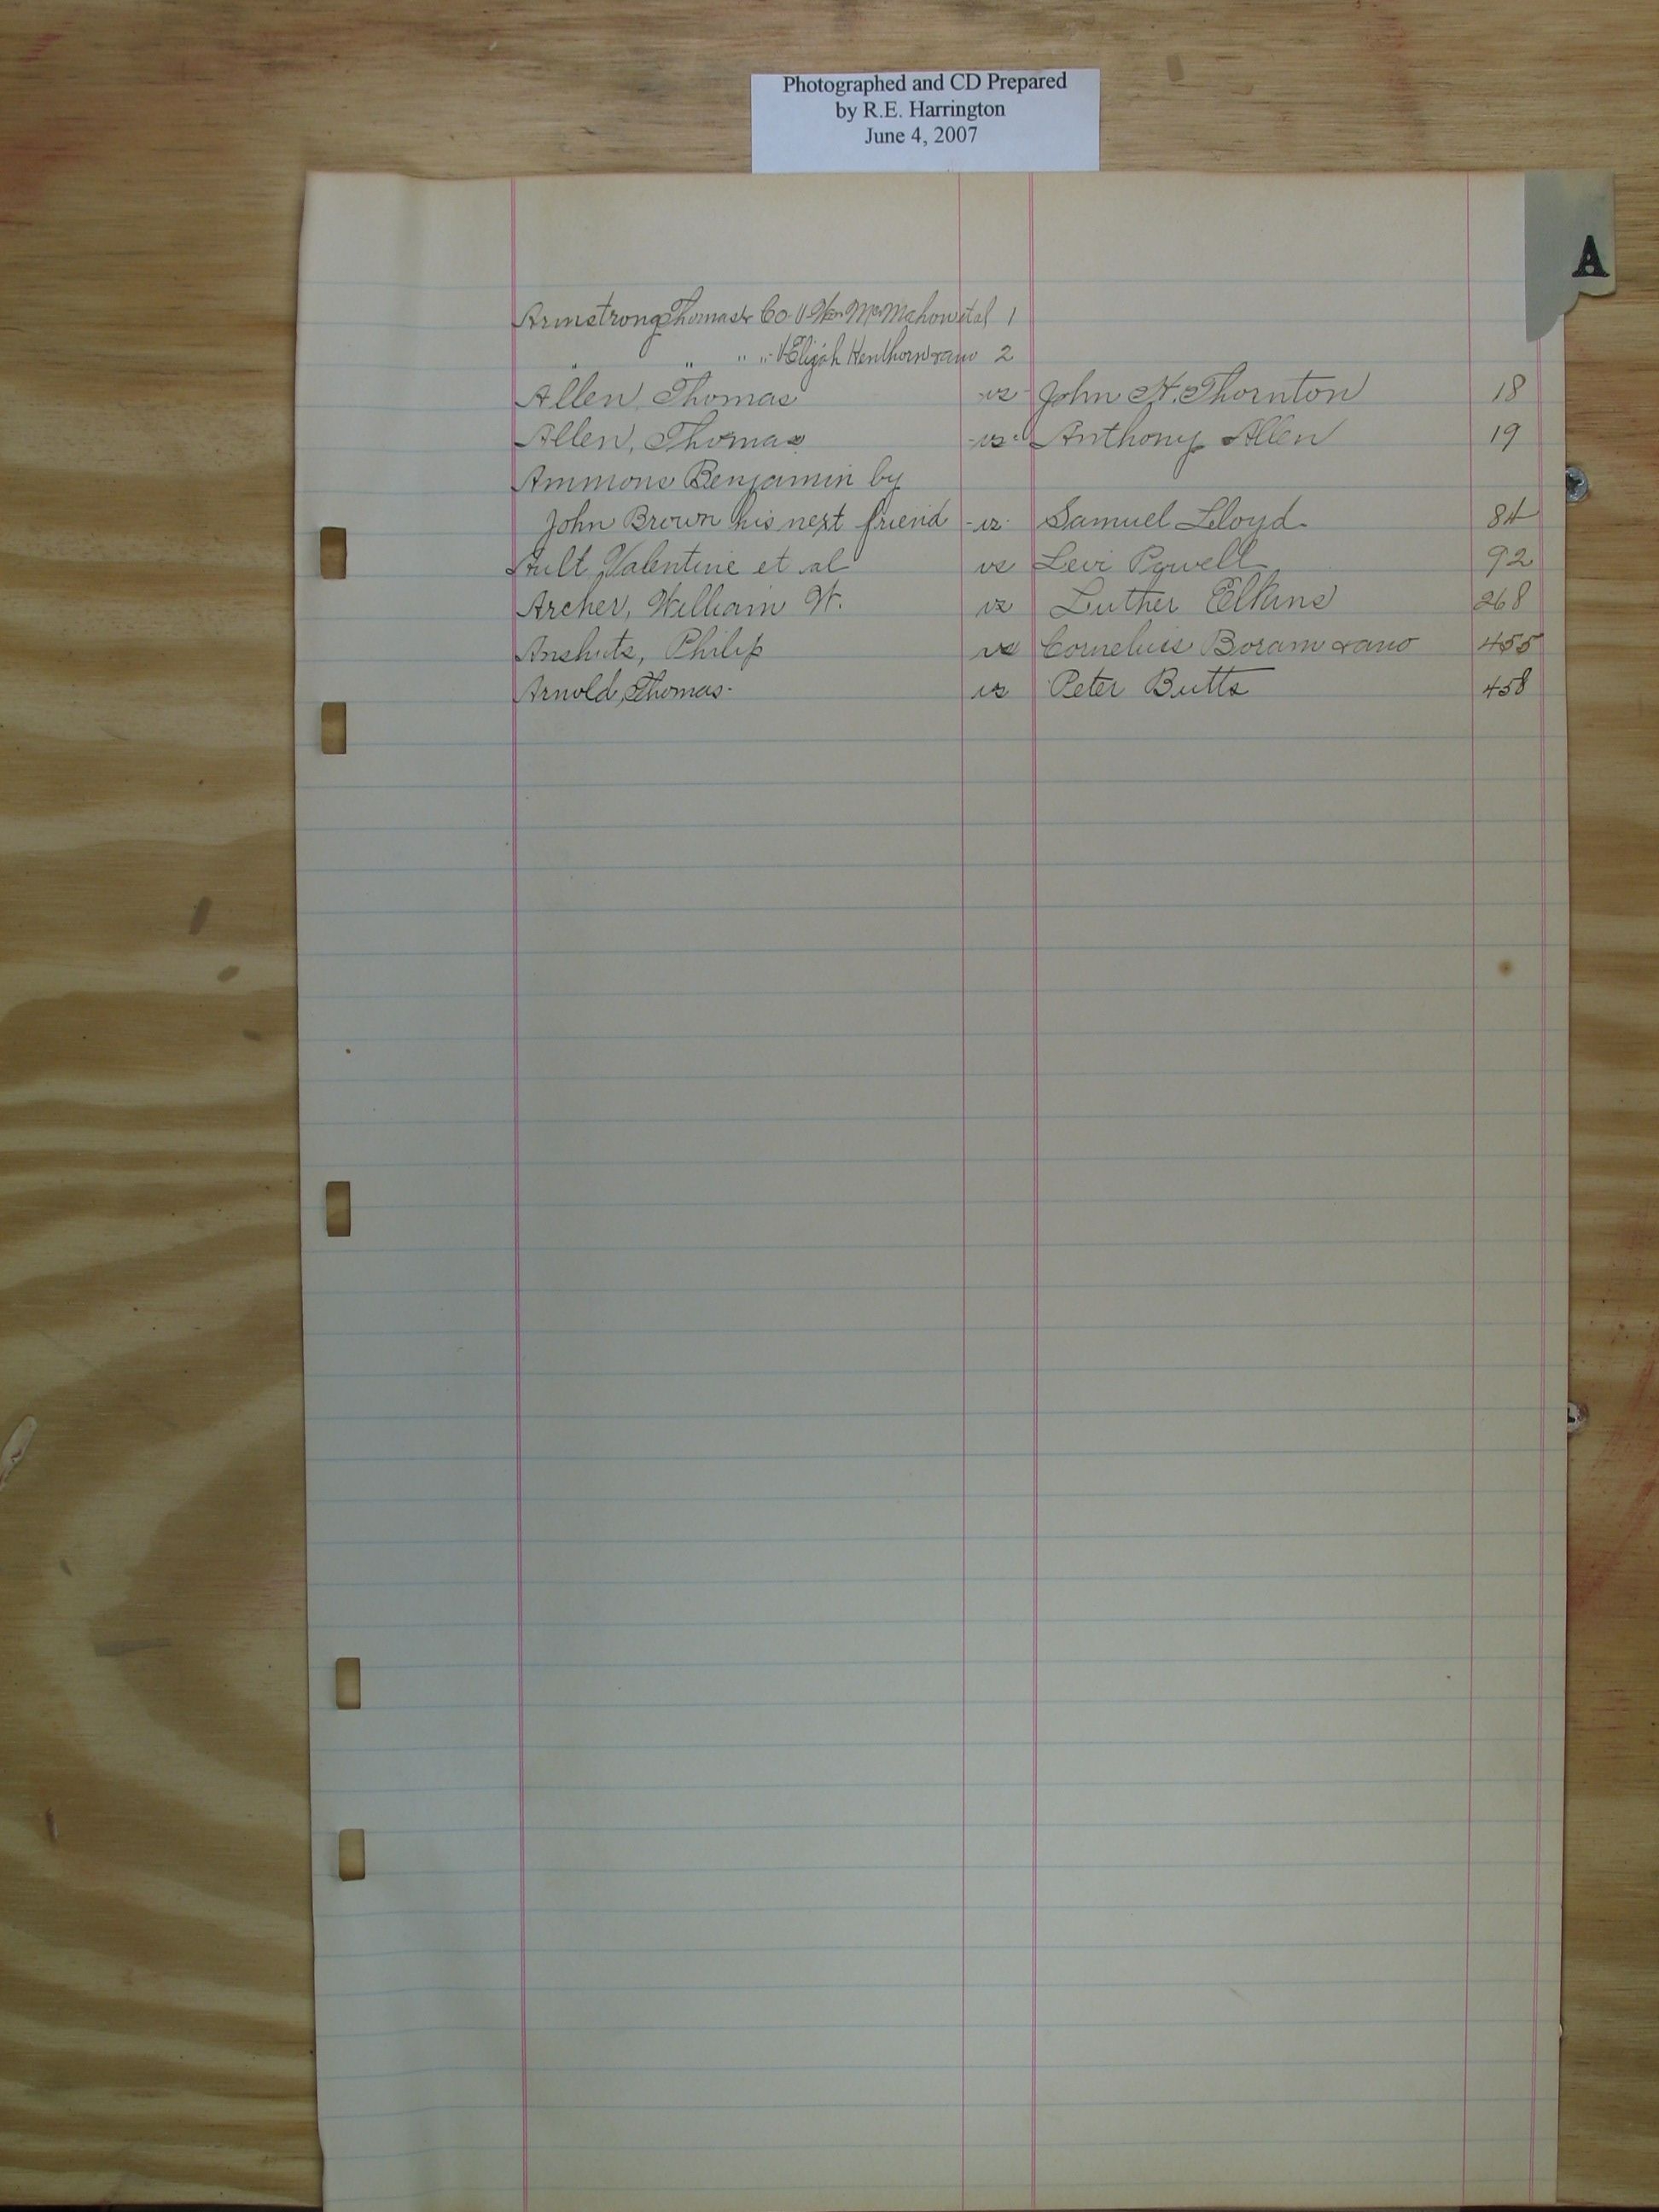 Photographed and CD Prepared
by R.E. Harrington
June 4, 2007
A
Armstrong Thomas & Co. V. Wm McMahon et al 1
" " " " V Elijah Henthorn & ano 2
Allen, Thomas vs John H. Thornton 18
Allen, Thomas vs Anthony Allen 19
Ammons Benjamin by
John Brown his next friend vs Samuel Lloyd 84
Ault, Valentine et al vs Levi Powell 92
Archer, William W. vs Luther Elkins 268
Anshuts, Philip vs Cornelius Boram & ano 455
Arnold, Thomas vs Peter Butts 458